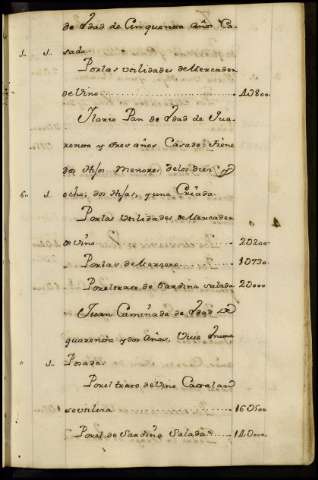 de Edad de Cinquenta años Ca-
1. 1. sado
Por las Utilidades de Mercader
de Vino 4 0800
Ilario Pan de Edad de Qua
renta y tres años Casado tiene
dos Hijos Menores delos diez y
6. 1. ocho, dos Hijas, y una Criada
Por las Utilidades de Mercader
de Vino 2 0200
Por las de Mersero 1 0730
Por el trato de Sardina salada 2 0000
Juan Caminada de Edad de
quarenta y dos Años, Vive
1. Posada
Por el trato de Vino
se utiliza 16 0500
Por el de Sardina Salada 14 0000